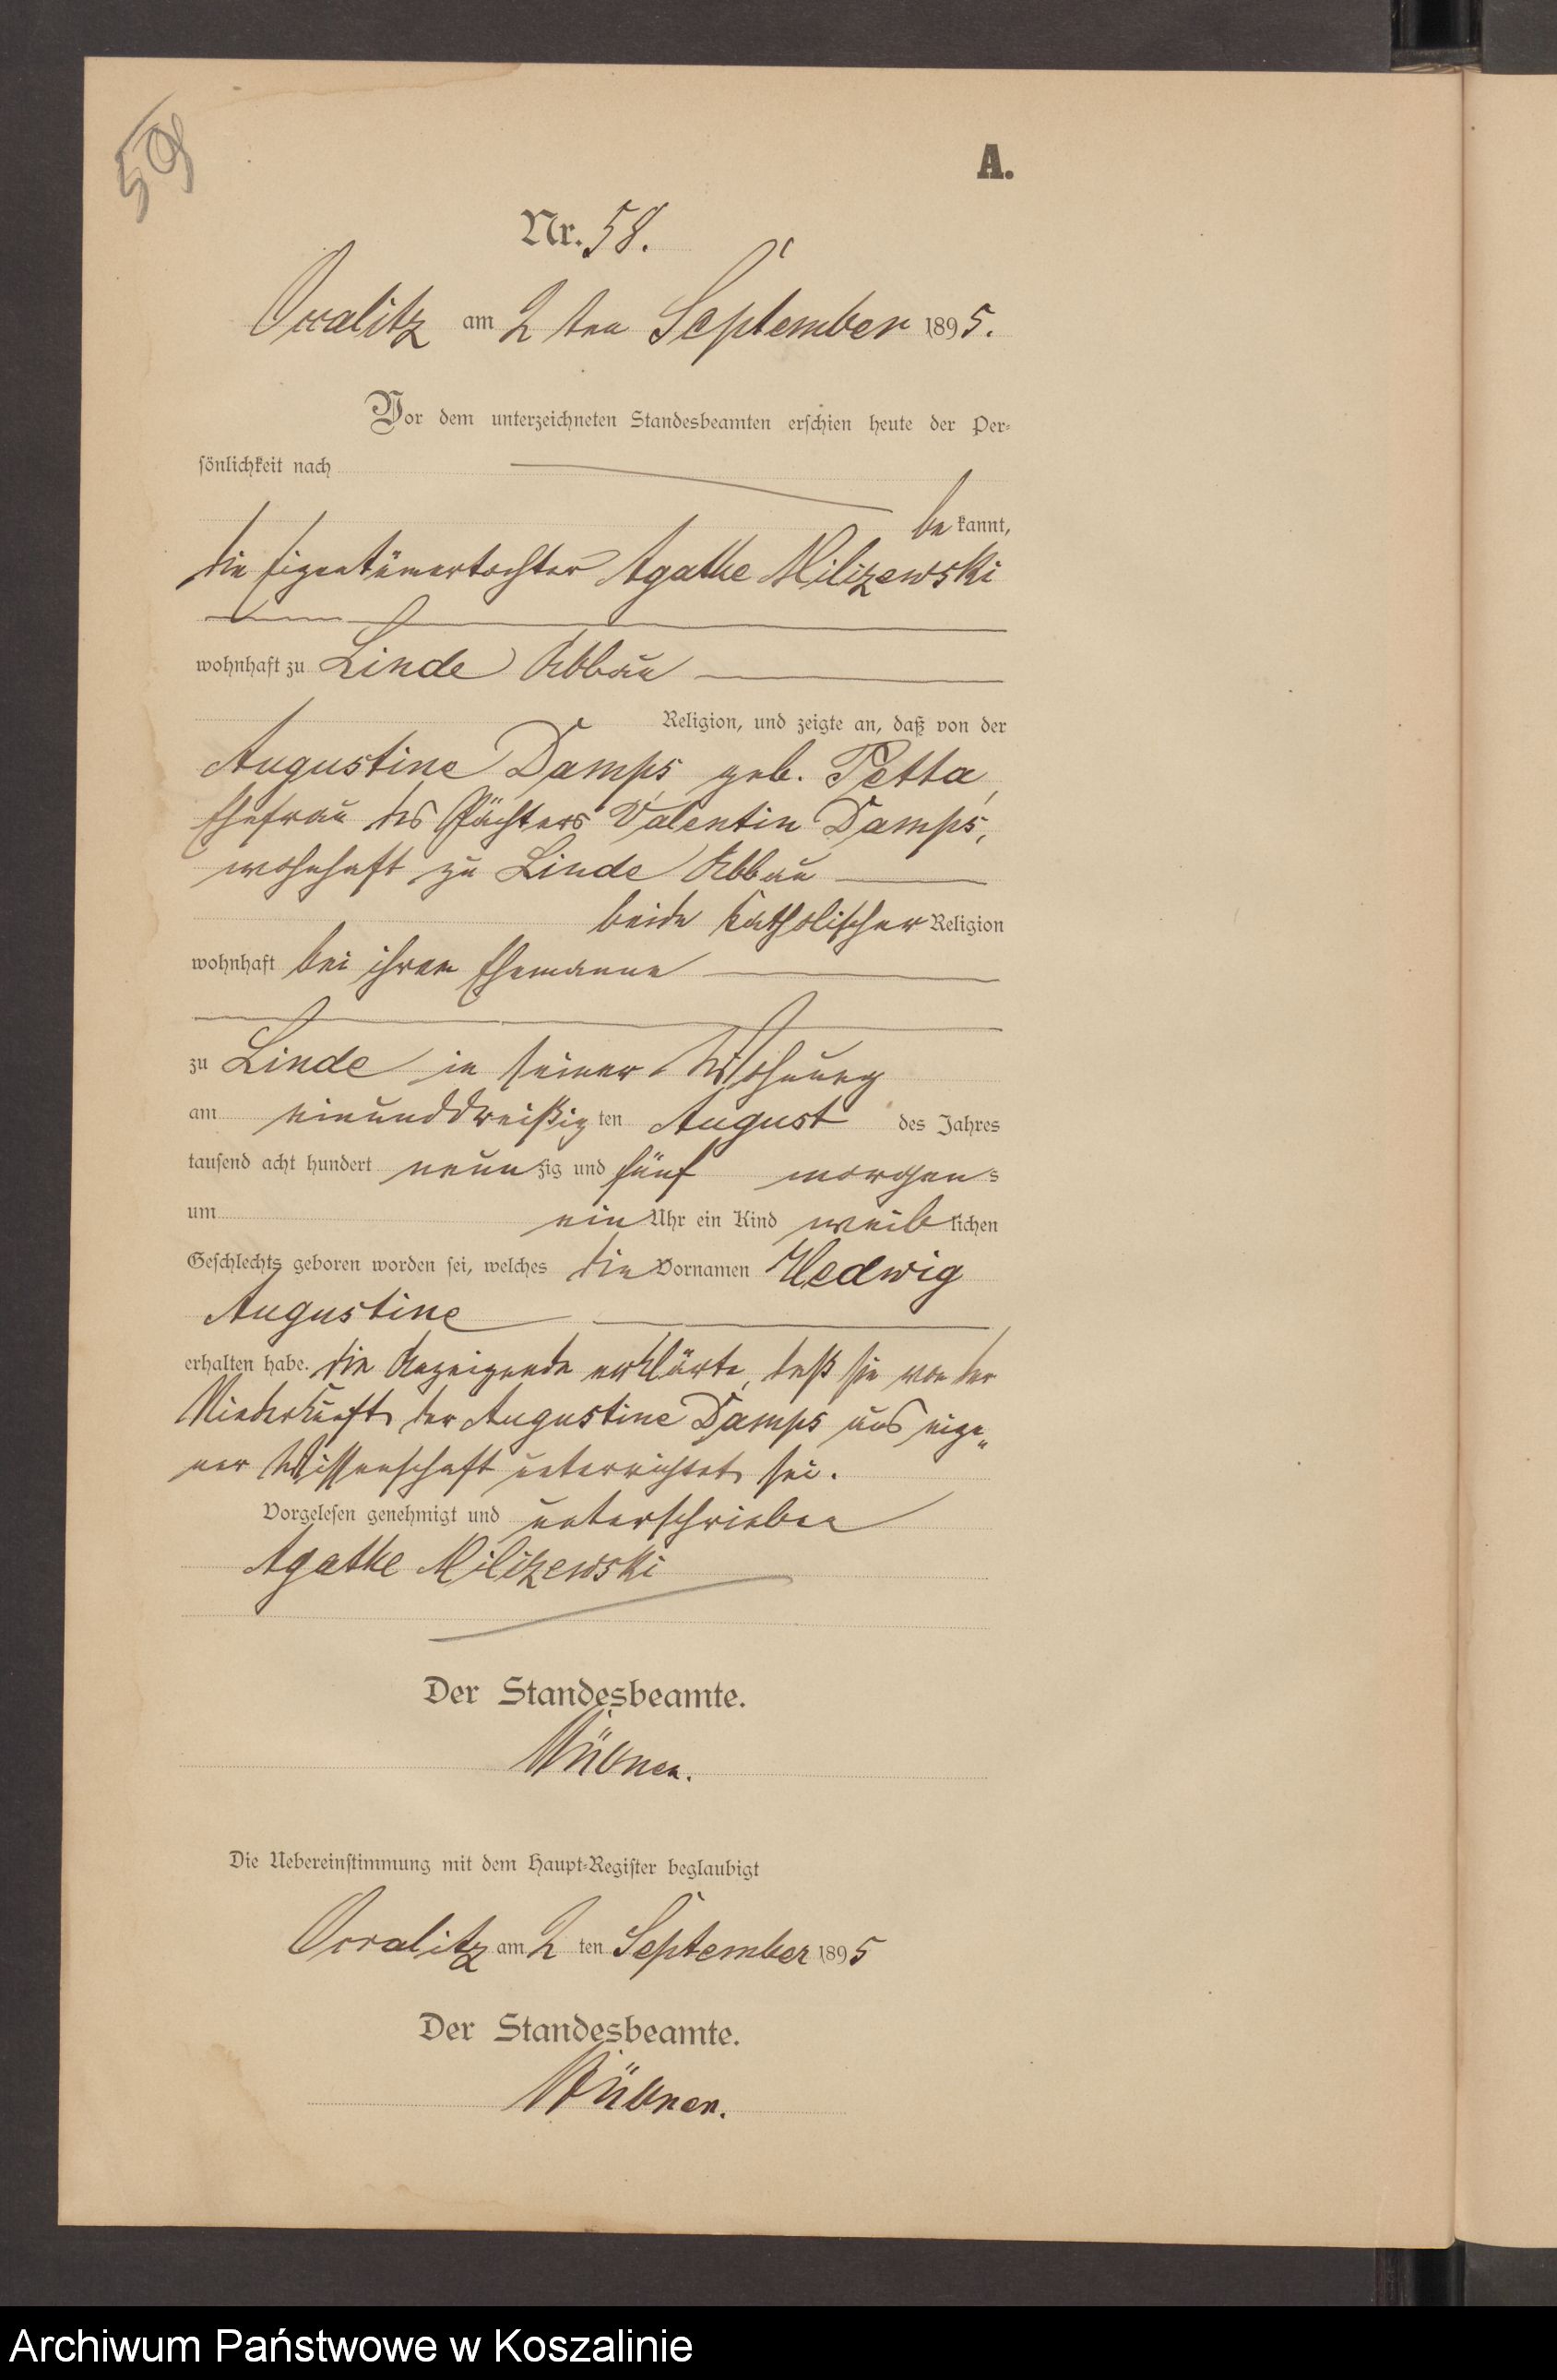 59
A.
Nr. 58.
Osralitz am 2 ten September 1895.
Vor dem unterzeichneten Standesbeamten erschien heute der Per-
sönlichkeit nach
be kannt,
die Eigentümertochter Agathe Milizewski
wohnhaft zu Linde Abbau
Religion, und zeigte an, daß von der
Augustine Damps geb. Petta,
Ehefrau des Pächters Valentin Damps,
wohnhaft zu Linde Abbau
beide katholischer Religion
wohnhaft bei ihrem Ehemanne
zu Linde in seiner Wohnung
am einunddreißig ten August des Jahres
tausend acht hundert neun zig und fünf morgens
um ein Uhr ein Kind weib lichen
Geschlechts geboren worden sei, welches die Vornamen Hedwig
Augustine
erhalten habe. Die Anzeigende erklärte, daß sie von der
Niederkunft der Augustine Damps aus eige„
ner Wissenschaft unterrichtet sei.
Vorgelesen genehmigt und unterschrieben
Agathe Milizewski
Der Standesbeamte.
Die Uebereinstimmung mit dem Haupt-Register beglaubigt
Osralitz am 2 ten September 1895
Der Standesbeamte.
Archiwum Państwowe w Koszalinie